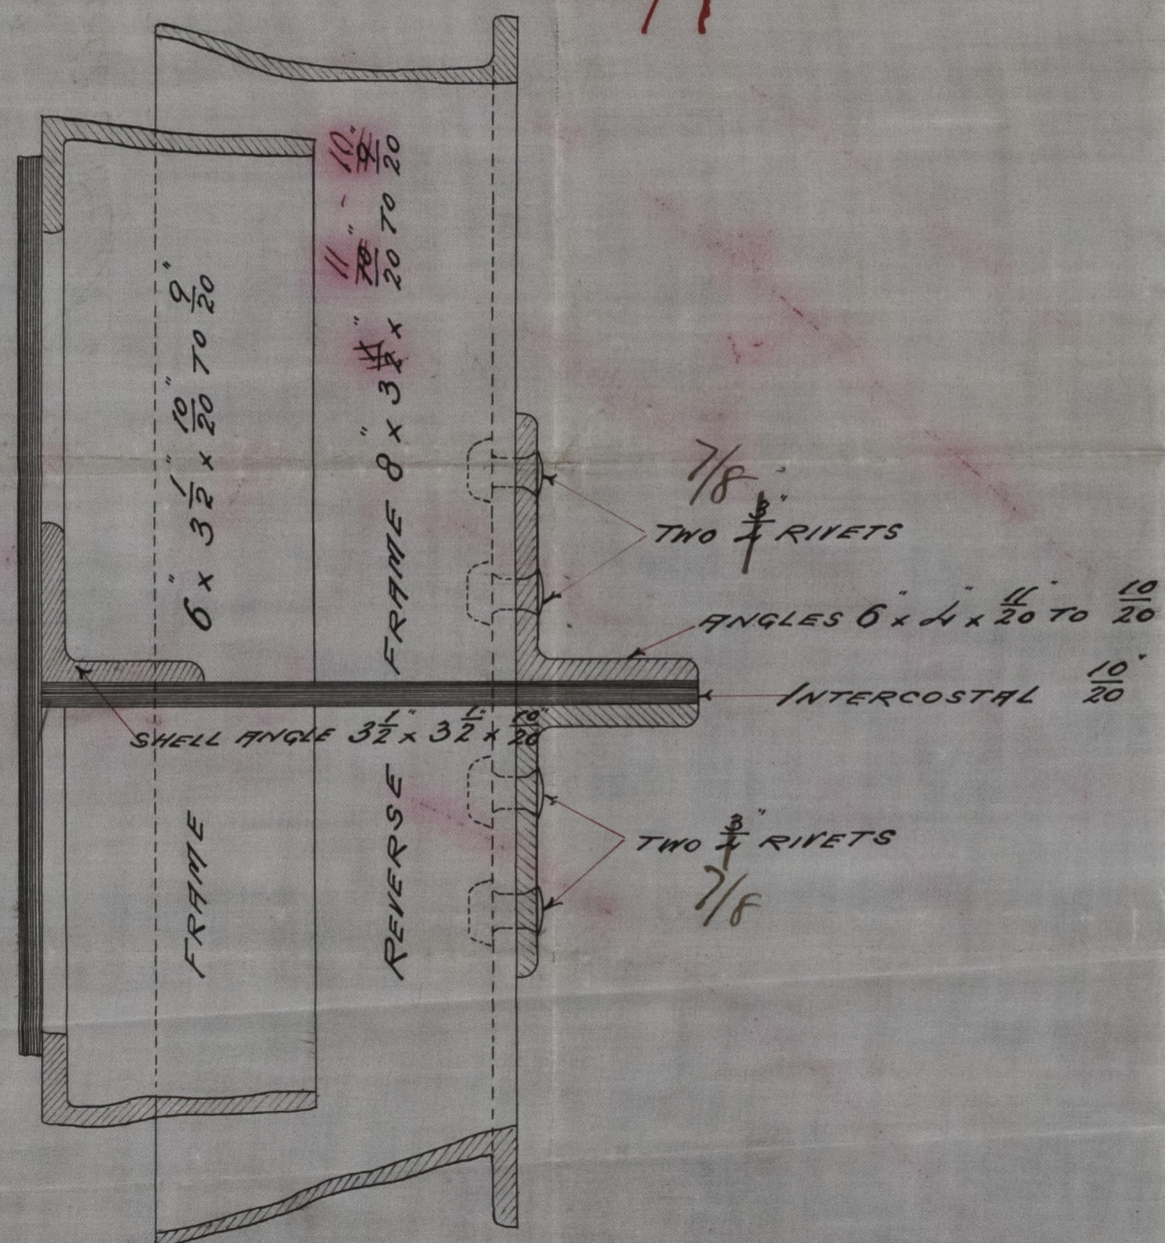 FRAME 6" x 3 1/2" x 10"/20 TO 9"/20
REVERSE FRAME 8" x 3 x 11"/20 TO 10"/20
7/8"
TWO 3/4" RIVETS
ANGLES 6" x 4" x 11"/20 TO 10/20
INTERCOSTAL 10"/20
SHELL ANGLE 3 1/2" x 3 1/2" x 10"/20
TWO 3/4" RIVETS
7/8